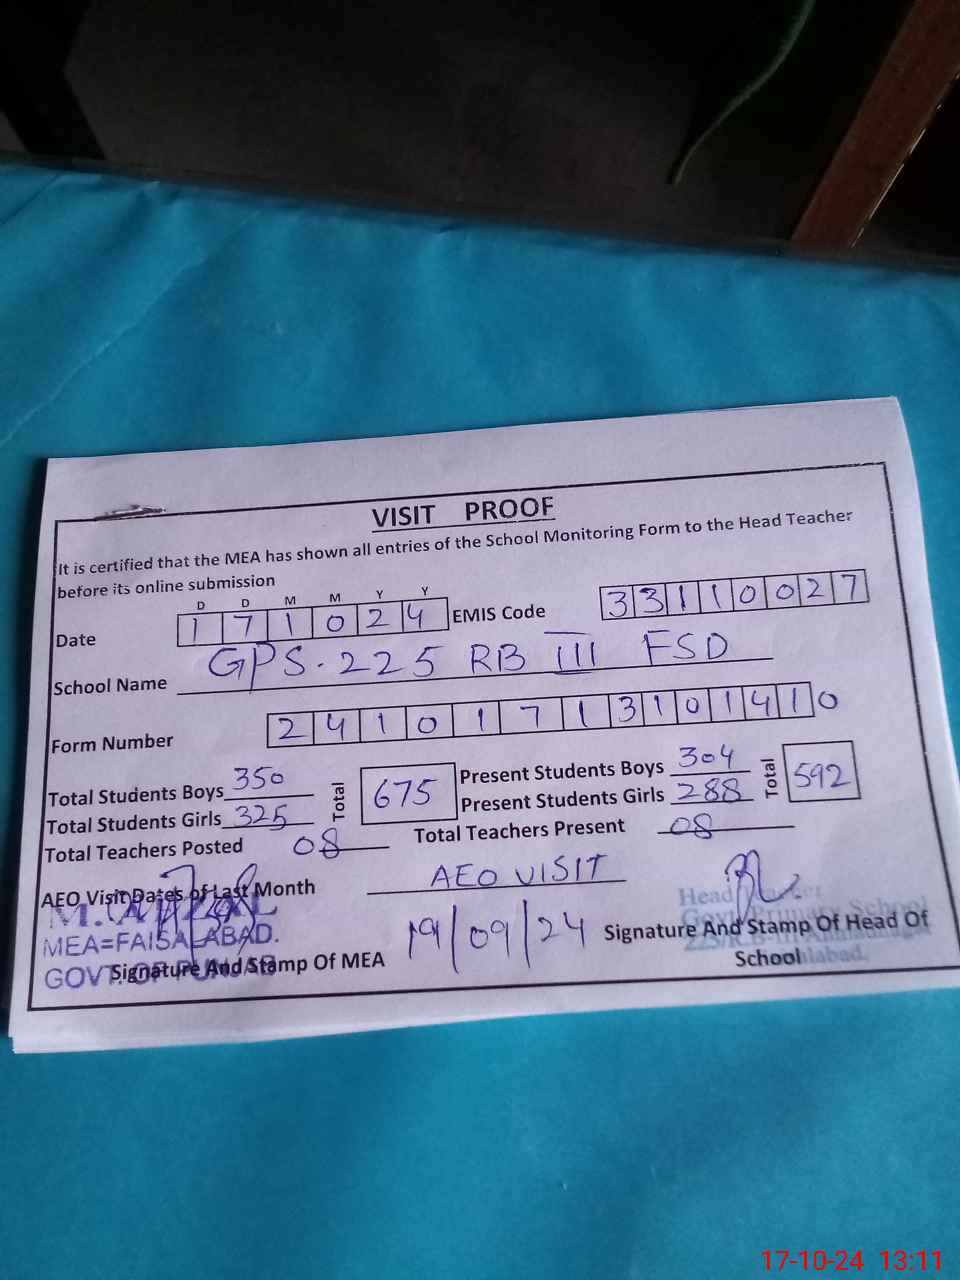 VISIT PROOF
It is certified that the MEA has shown all entries of the School Monitoring Form to the Head Teacher
before its online submission
D D M M Y Y
Date 171024 EMIS Code 33110027
School Name GPS. 225 RB III FSD
Form Number 24101713101410
Total Students Boys 350 Present Students Boys 304
Total 675 Total 592
Total Students Girls 325 Present Students Girls 288
Total Teachers Posted 08 Total Teachers Present 08
AEO Visit Dates of Last Month AEO VISIT
19/09/24
MEA=FAISALABAD.
GOVT. OF PUNJAB
Signature And Stamp Of MEA
Head Teacher
Govt. Primary School
Signature And Stamp Of Head Of
School
17-10-24 13:11